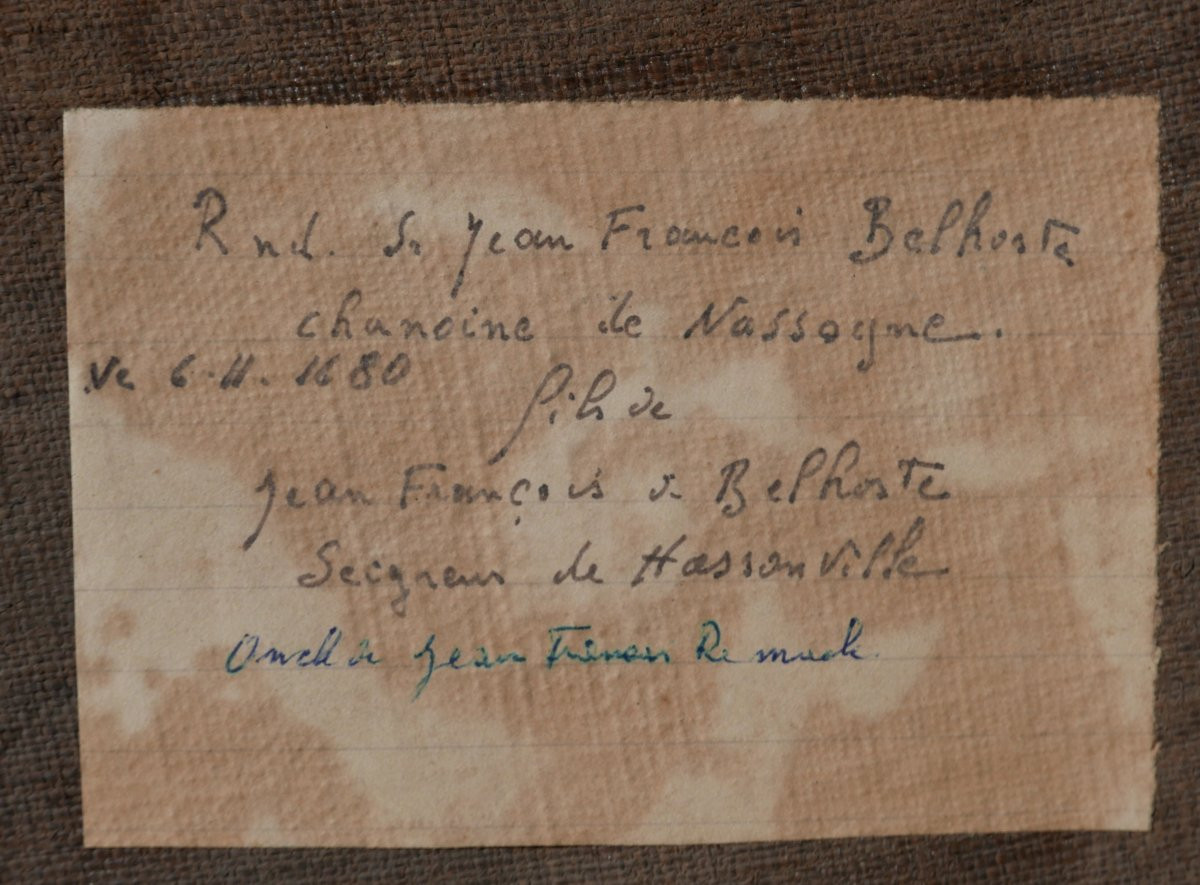 Rnd. Sr Jean Francois Belhoste
chanoine de Nassogne.
6-11. 1680
fils de
Jean François de Belhoste
Seigneur de Hassonville
Jean Francois Remacle